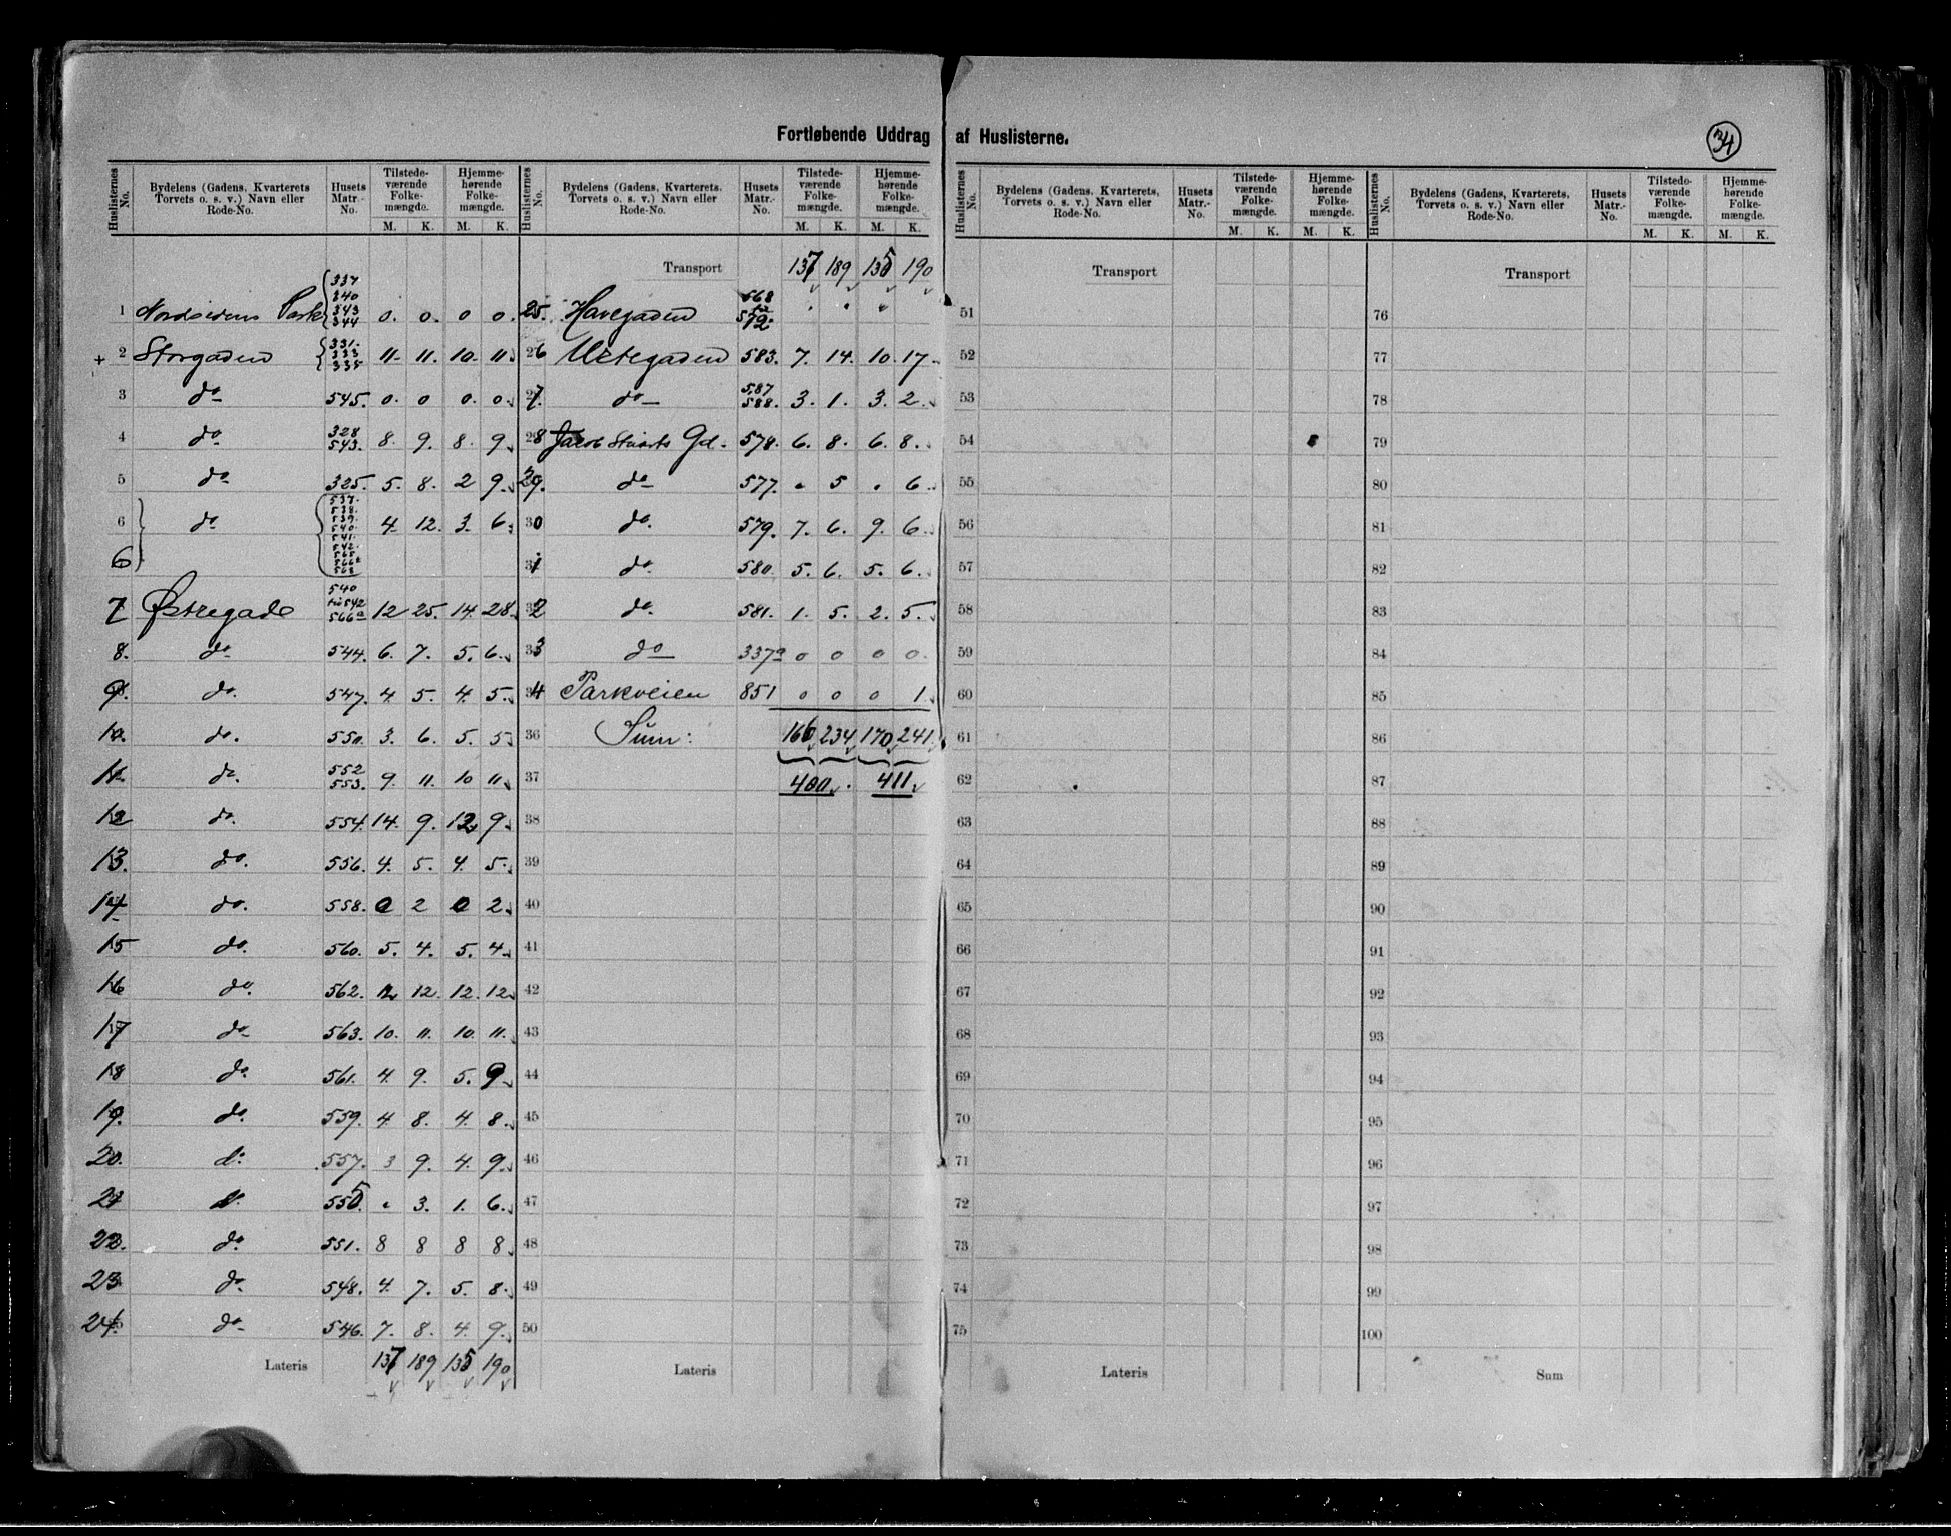 Fortløbende Uddrag af Huslisterne.
34
Huslisternes No. Bydelens (Gadens, Kvarterets Torvets o. s. v.) Navn eller Rode-No. Husets Matr.-No. Tilstedeværende Folkemængde. Hjemmehørende Folkemængde.
M. K. M. K.
1 Nordsidens Park 337 340 343 344 0. 0. 0 0.
+ 2 Storgaden 331. 333 335 11. 11. 10. 11.
3 do 545. 0. 0 0. 0.
4 do 328 543. 8. 9. 8. 9.
5 do 325. 5. 8. 2 9.
6 do 537. 538. 539. 540. 541. 542. 565. 566 568 4. 12. 3. 6.
6
7 Østregade 540 542 566a 12 25. 14. 28.
8. do 544. 6. 7. 5. 6.
9. do. 547. 4. 5. 4. 5.
10. do. 550. 3. 6. 5. 5.
11. do. 552 553. 9. 11. 10 11.
12 do. 554. 14. 9. 12 9.
13. do. 556. 4. 5. 4. 5.
14 do. 558. 0 2 0 2.
15 do. 560. 5. 4. 5. 4.
16 do. 562. 12 12. 12. 12.
17 do 563. 10. 11. 10. 11.
18 do. 561. 4. 9. 5. 9.
19. do. 559. 4. 8. 4. 8.
20. do 557. 3 9. 4. 9.
21 do. 555 . 3. 1. 6.
22. do. 551. 8 8 8 8.
23 do 548. 4. 7. 5. 8.
24. do 546. 7. 8. 4. 9.
Lateris 137 189 135 190
Huslisternes No. Bydelens (Gadens, Kvarterets, Torvets o. s. v.) Navn eller Rode-No. Husets Matr.-No. Tilstedeværende Folkemængde. Hjemmehørende Folkemængde.
M. K. M. K.
Transport 137 189 135 190
25. Havegaden 568 572
26 Vestegaden 583. 7. 14. 10. 17.
27. do 587 588. 3. 1. 3. 2.
28 Jacob Stuarts Gd. 578. 6. 8. 6. 8.
29. do 577. . 5 . 6.
30 do. 579. 7. 6. 9. 6.
31 do. 580. 5. 6. 5. 6.
32 do. 581. 1. 5. 2. 5.
33 do 337a 0 0 0 0.
34 Parkveien 851 0 0 0 1.
36 Sum: 166 234 170 241
37 400. 411
38
39
40
41
42
43
44
45
46
47
48
49
50
Lateris
Huslisternes No. Bydelens (Gadens, Kvarterets, Torvets o. s. v.) Navn eller Rode-No. Husets Matr.-No. Tilstedeværende Folkemængde. Hjemmehørende Folkemængde.
M. K. M. K.
Transport
51
52
53
54
55
56
57
58
59
60
61
62
63
64
65
66
67
68
69
70
71
72
73
74
75
Lateris
Huslisternes No. Bydelens (Gadens, Kvarterets, Torvets o. s. v.) Navn eller Rode-No. Husets Matr.-No. Tilstedeværende Folkemængde. Hjemmehørende Folkemængde.
M. K. M. K.
Transport
76
77
78
79
80
81
82
83
84
85
86
87
88
89
90
91
92
93
94
95
96
97
98
99
100
Sum